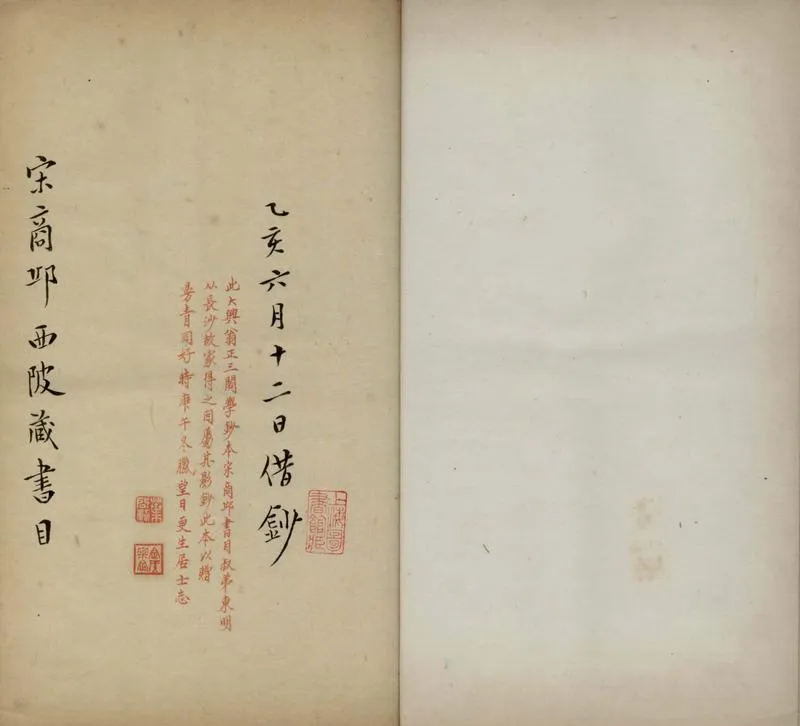 上海圖
書館藏
乙亥六月十二日借鈔
此大興翁正三閣學鈔本宋商邱書目叔弟東明
从長沙故家得之因屬其影鈔此本以贈
青同好時庚午冬臘望日更生居士志
宋商邱西陂藏書目